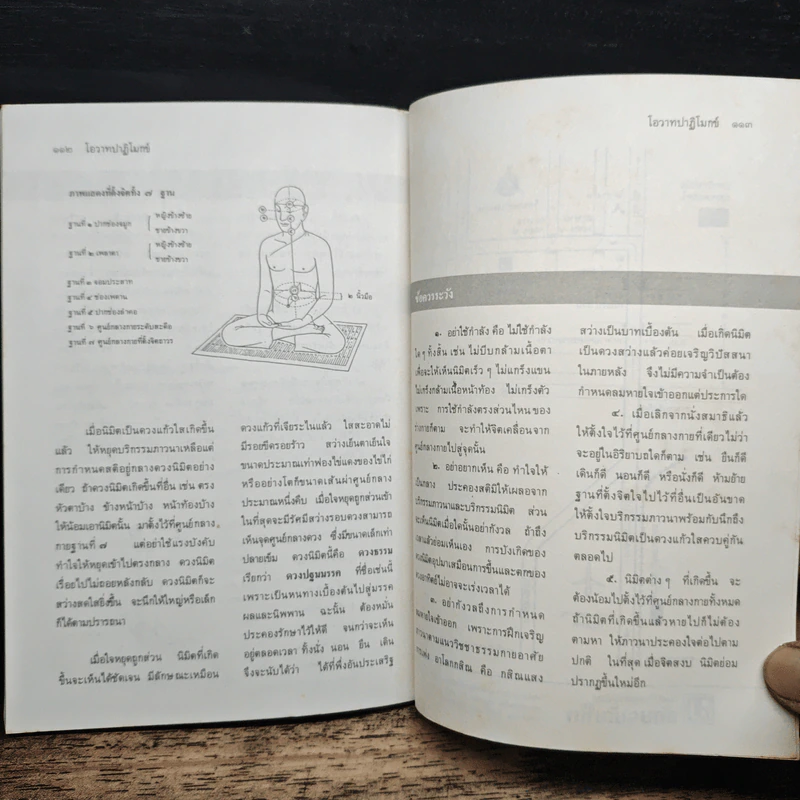 ๑๑๒ โอวาทปาฏิโมกข์
ภาพแสดงที่ตั้งจิตทั้ง ๗ ฐาน
ฐานที่ ๑ ปากช่องจมูก
หญิงข้างซ้าย
ชายข้างขวา
ฐานที่ ๒ เพลาตา
หญิงข้างซ้าย
ชายข้างขวา
ฐานที่ ๓ จอมประสาท
ฐานที่ ๔ ช่องเพดาน
ฐานที่ ๕ ปากช่องลำคอ
ฐานที่ ๖ ศูนย์กลางกายระดับสะดือ
ฐานที่ ๗ ศูนย์กลางกายที่ตั้งจิตถาวร
๒ นิ้วมือ
เมื่อนิมิตเป็นดวงแก้วใสเกิดขึ้น
แล้ว ให้หยุดบริกรรมภาวนาเหลือแต่
การกำหนดสติอยู่กลางดวงนิมิตอย่าง
เดียว ถ้าดวงนิมิตเกิดขึ้นที่อื่น เช่น ตรง
หัวตาบ้าง ข้างหน้าบ้าง หน้าท้องบ้าง
ให้น้อมเอานิมิตนั้น มาตั้งไว้ที่ศูนย์กลาง
กายฐานที่ ๗ แต่อย่าใช้แรงบังคับ
ทำใจให้หยุดเข้าไปตรงกลาง ดวงนิมิต
เรื่อยไปไม่ถอยหลังกลับ ดวงนิมิตก็จะ
สว่างสดใสยิ่งขึ้น จะนึกให้ใหญ่หรือเล็ก
ก็ได้ตามปรารถนา
เมื่อใจหยุดถูกส่วน นิมิตที่เกิด
ขึ้นจะเห็นได้ชัดเจน มีลักษณะเหมือน
ดวงแก้วที่เจียระไนแล้ว ใสสะอาดไม่
มีรอยขีดรอยร้าว สว่างเย็นตาเย็นใจ
ขนาดประมาณเท่าฟองไข่แดงของไข่ไก่
หรืออย่างโตก็ขนาดเส้นผ่าศูนย์กลาง
ประมาณหนึ่งคืบ เมื่อใจหยุดถูกส่วนเข้า
ในที่สุดจะมีรัศมีสว่างรอบดวงสามารถ
เห็นจุดศูนย์กลางดวง ซึ่งมีขนาดเล็กเท่า
ปลายเข็ม ดวงนิมิตนี้คือ ดวงธรรม
เรียกว่า ดวงปฐมมรรค ที่ชื่อเช่นนี้
เพราะเป็นหนทางเบื้องต้นไปสู่มรรค
ผลและนิพพาน ฉะนั้น ต้องหมั่น
ประคองรักษาไว้ให้ดี จนกว่าจะเห็น
อยู่ตลอดเวลา ทั้งนั่ง นอน ยืน เดิน
จึงจะนับได้ว่า ได้ที่พึ่งอันประเสริฐ
โอวาทปาฏิโมกข์ ๑๑๓
ข้อควรระวัง
๑. อย่าใช้กำลัง คือ ไม่ใช้กำลัง
ใดๆ ทั้งสิ้น เช่น ไม่บีบกล้ามเนื้อตา
เพื่อจะให้เห็นนิมิตเร็ว ๆ ไม่เกร็งแขน
ไม่เกร็งกล้ามเนื้อหน้าท้อง ไม่เกร็งตัว
เพราะ การใช้กำลังตรงส่วนไหนของ
ร่างกายก็ตาม จะทำให้จิตเคลื่อนจาก
ศูนย์กลางกายไปสู่จุดนั้น
๒. อย่าอยากเห็น คือ ทำใจให้
เป็นกลาง ประคองสติมิให้เผลอจาก
บริกรรมภาวนาและบริกรรมนิมิต ส่วน
จะเห็นนิมิตเมื่อใดนั้นอย่ากังวล ถ้าถึง
เวลาแล้วย่อมเห็นเอง การบังเกิดของ
ดวงนิมิตอุปมาเสมือนการขึ้นและตกของ
ดวงอาทิตย์ไม่อาจจะเร่งเวลาได้
๓. อย่ากังวลถึงการกำหนด
ลมหายใจเข้าออก เพราะการฝึกเจริญ
ภาวนาตามแนววิชชาธรรมกายอาศัย
การเพ่ง อาโลกกสิณ คือ กสิณแสง
สว่างเป็นบาทเบื้องต้น เมื่อเกิดนิมิต
เป็นดวงสว่างแล้วค่อยเจริญวิปัสสนา
ในภายหลัง จึงไม่มีความจำเป็นต้อง
กำหนดลมหายใจเข้าออกแต่ประการใด
๔. เมื่อเลิกจากนั่งสมาธิแล้ว
ให้ตั้งใจไว้ที่ศูนย์กลางกายที่เดียวไม่ว่า
จะอยู่ในอิริยาบถใดก็ตาม เช่น ยืนก็ดี
เดินก็ดี นอนก็ดี หรือนั่งก็ดี ห้ามย้าย
ฐานที่ตั้งจิตใจไปไว้ที่อื่นเป็นอันขาด
ให้ตั้งใจบริกรรมภาวนาพร้อมกับนึกถึง
บริกรรมนิมิตเป็นดวงแก้วใสควบคู่กัน
ตลอดไป
๕. นิมิตต่างๆ ที่เกิดขึ้น จะ
ต้องน้อมไปตั้งไว้ที่ศูนย์กลางกายทั้งหมด
ถ้านิมิตที่เกิดขึ้นแล้วหายไปก็ไม่ต้อง
ตามหา ให้ภาวนาประคองใจต่อไปตาม
ปกติ ในที่สุดเมื่อจิตสงบ นิมิตย่อม
ปรากฏขึ้นใหม่อีก